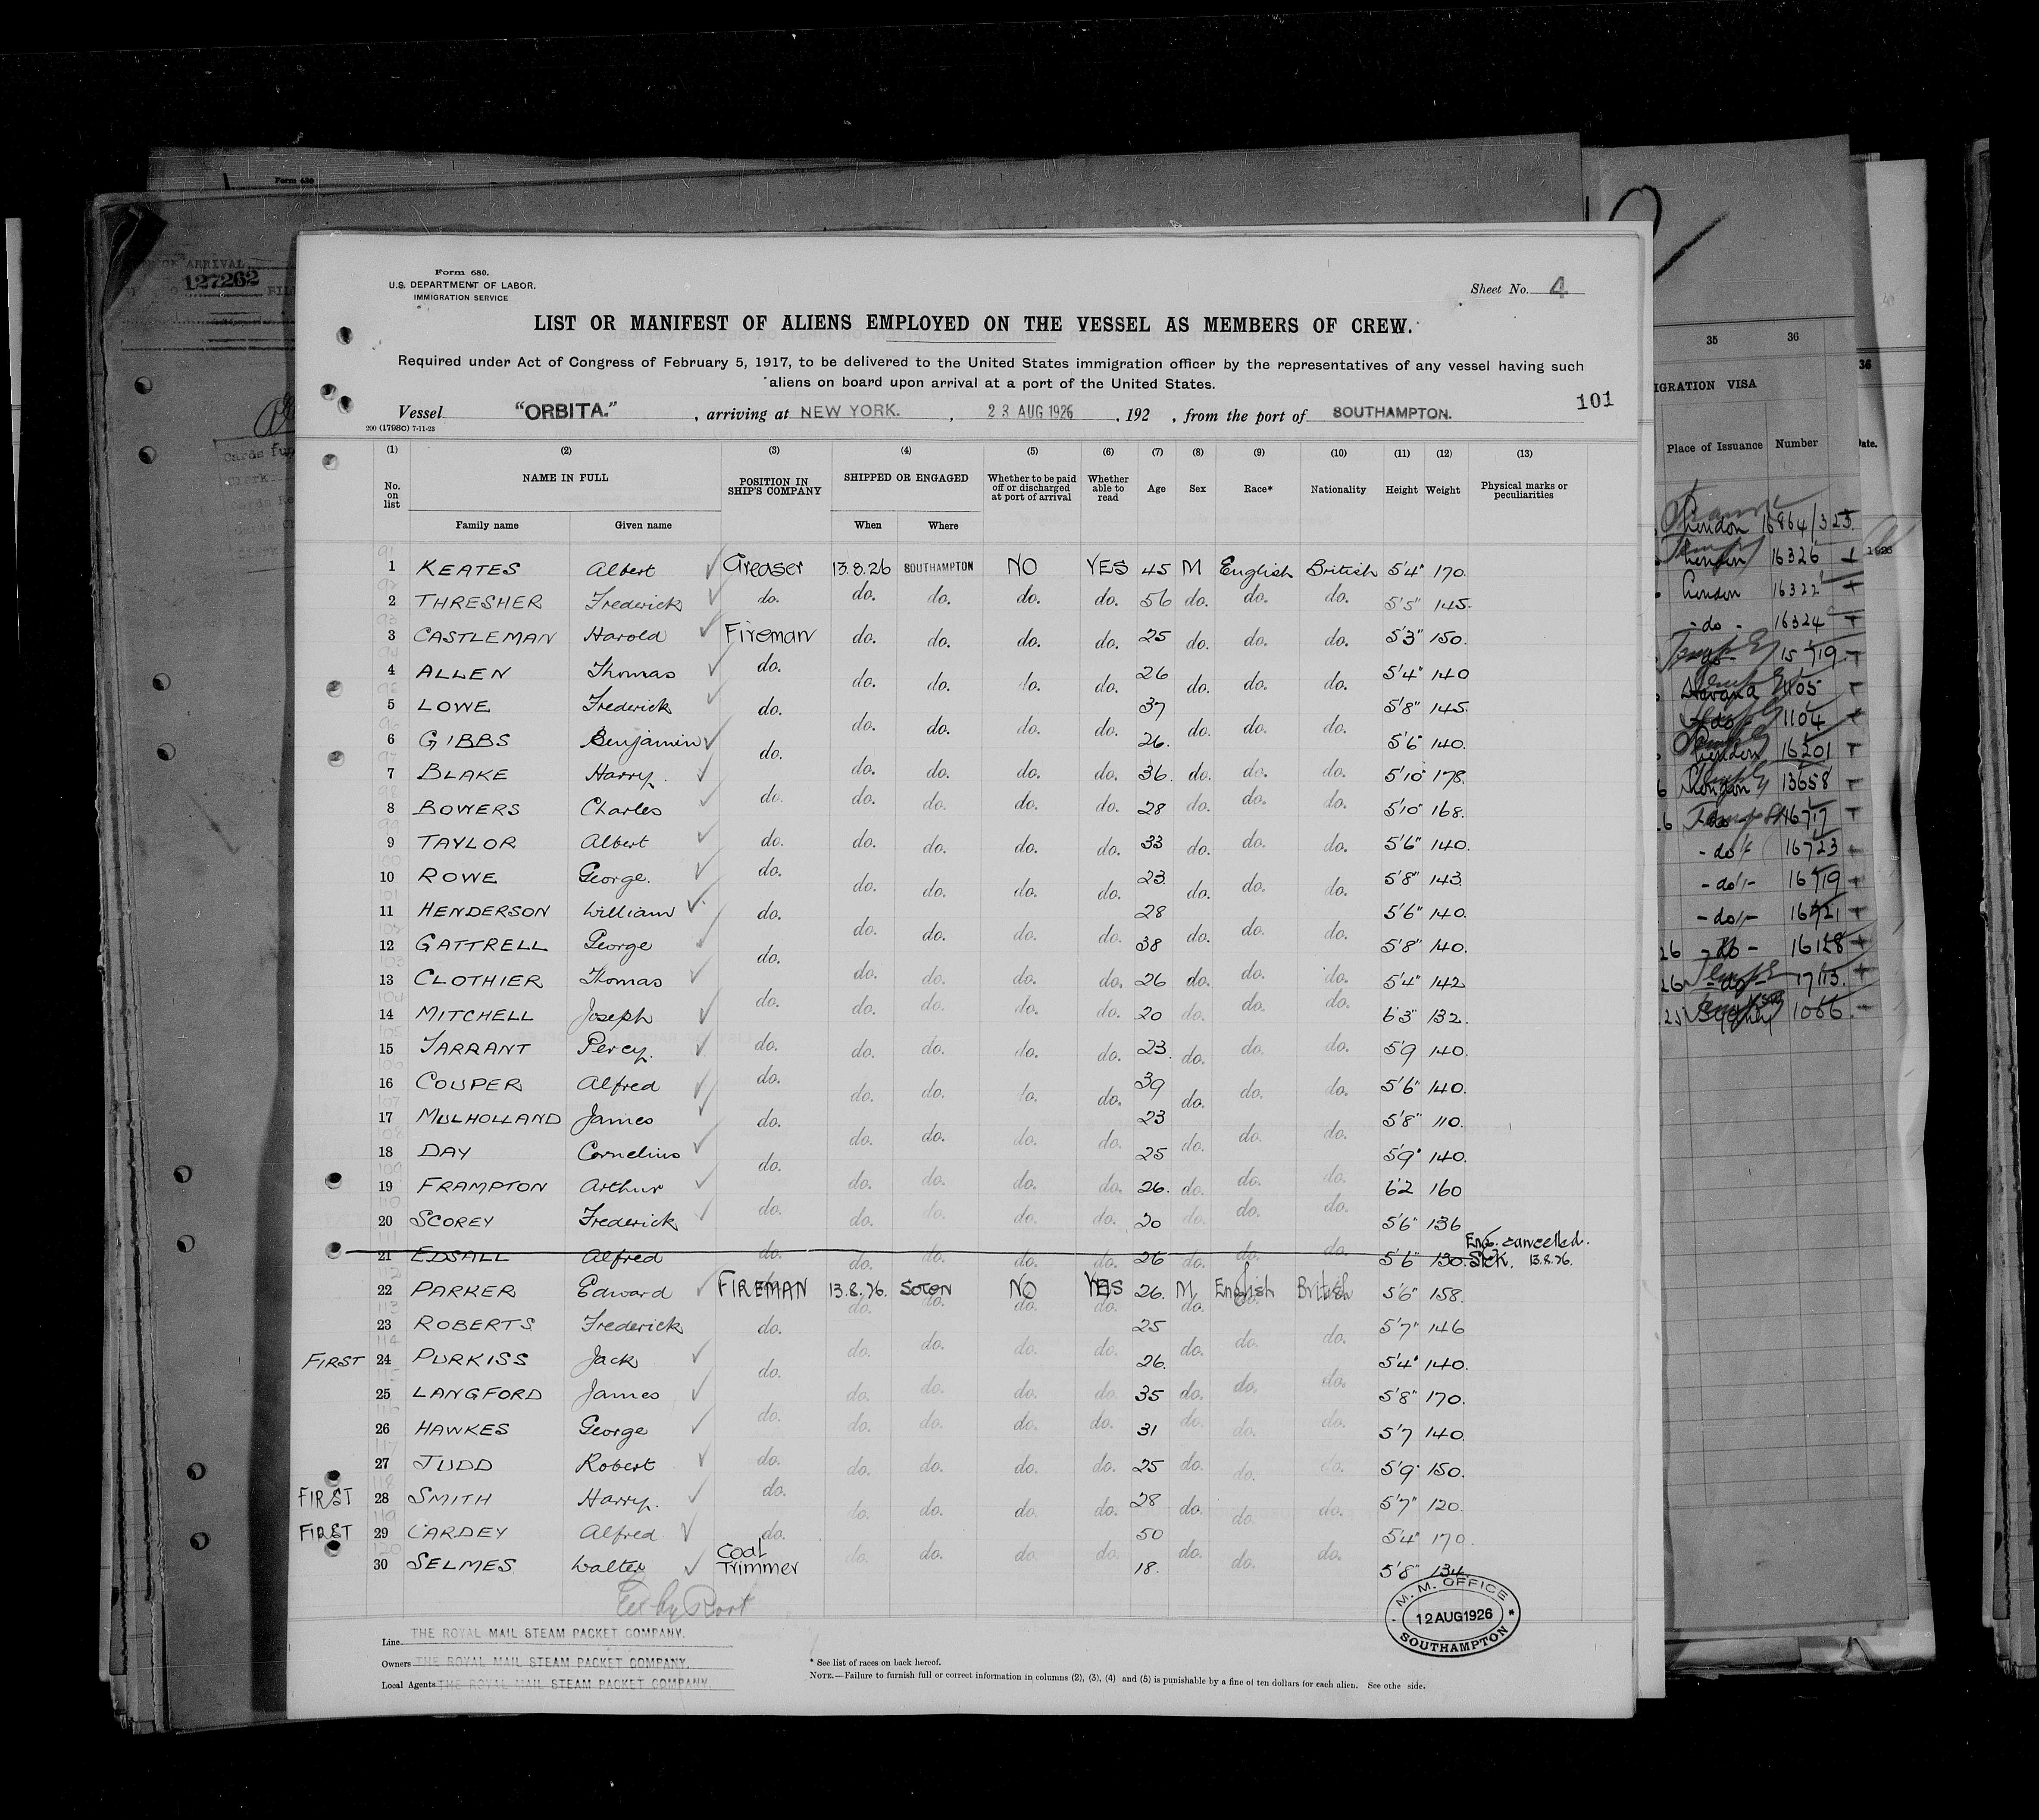 Form 630
OF ARRIVAL
127262
Form 680.
U.S. DEPARTMENT OF LABOR.
IMMIGRATION SERVICE
Sheet No. 4
LIST OR MANIFEST OF ALIENS EMPLOYED ON THE VESSEL AS MEMBERS OF CREW.
Required under Act of Congress of February 5, 1917, to be delivered to the United States immigration officer by the representatives of any vessel having such
aliens on board upon arrival at a port of the United States.
101
Vessel "ORBITA." , arriving at NEW YORK. , 23 AUG 1926 , 192 , from the port of SOUTHAMPTON.
200 (1798c) 7-11-23
(1) (2) (3) (4) (5) (6) (7) (8) (9) (10) (11) (12) (13)
No. on list NAME IN FULL POSITION IN SHIP'S COMPANY SHIPPED OR ENGAGED Whether to be paid off or discharged at port of arrival Whether able to read Age Sex Race* Nationality Height Weight Physical marks or peculiarities
Family name Given name When Where
1 KEATES Albert Greaser 13.8.26 SOUTHAMPTON NO YES 45 M English British 5'4" 170.
2 THRESHER Frederick do. do. do. do. do. 56 do. do. do. 5'5" 145.
3 CASTLEMAN Harold Fireman do. do. do. do. 25 do. do. do. 5'3" 150.
4 ALLEN Thomas do. do. do. do. do. 26 do. do. do. 5'4" 140
5 LOWE Frederick do. do. do. do. do. 37 do. do. do. 5'8" 145.
6 GIBBS Benjamin do. 26. 5'6" 140.
7 BLAKE Harry. do. do. do. do. 36. do. do. do. 5'10" 178.
8 BOWERS Charles do. do. do. do. do. 28 do. do. do. 5'10" 168.
9 TAYLOR Albert do. do. do. do. do. 33 do. do. do. 5'6" 140.
10 ROWE George. do. do. do. do. do. 23. do. do. do. 5'8" 143.
11 HENDERSON William do. 28 5'6" 140.
12 GATTRELL George do. do. do. do. do. 38 do. do. do. 5'8" 140.
13 CLOTHIER Thomas do. do. do. do. 26 do. do. do. 5'4" 142
14 MITCHELL Joseph do. do. do. do. do. 20 do. do. do. 6'3" 132.
15 TARRANT Percy. do. do. do. do. do. 23. do. do. do. 5'9 140.
16 COUPER Alfred do. do. do. do. do. 39 do. do. do. 5'6" 140.
17 MULHOLLAND James do. 23 5'8" 110.
18 DAY Cornelius do. do. do. do. do. 25 do. do. do. 5'9" 140.
19 FRAMPTON Arthur do. do. do. do. 26. do. do. do. 6'2 160
20 SCOREY Frederick do. do. do. do. do. 20 do. do. do. 5'6" 136
21 EDSALL Alfred do. do. do. do. do. 26 do. do. do. 5'6" 130. Eng. cancelled. Sick. 13.8.26.
22 PARKER Edward FIREMAN 13.8.26. SOTON NO YES 26. M English British 5'6" 158.
23 ROBERTS Frederick do. do. do. do. do. 25 do. do. do. 5'7" 146
FIRST 24 PURKISS Jack do. do. do. do. do. 26. do. do. do. 5'4" 140.
25 LANGFORD James do. do. do. do. 35 do. do. do. 5'8" 170.
26 HAWKES George do. do. do. do. do. 31 do. do. do. 5'7 140.
27 JUDD Robert do. do. do. do. do. 25 do. do. do. 5'9" 150.
FIRST 28 SMITH Harry. do. do. do. do. do. 28 do. do. do. 5'7" 120.
FIRST 29 CARDEY Alfred do. 50 5'4" 170.
30 SELMES Walter Coal Trimmer do. do. do. do. 18. do. do. do. 5'8" 134.
M. M. OFFICE
12 AUG 1926
SOUTHAMPTON
Line THE ROYAL MAIL STEAM PACKET COMPANY.
Owners THE ROYAL MAIL STEAM PACKET COMPANY.
Local Agents THE ROYAL MAIL STEAM PACKET COMPANY.
* See list of races on back hereof.
NOTE.—Failure to furnish full or correct information in columns (2), (3), (4) and (5) is punishable by a fine of ten dollars for each alien. See othe side.
35 36
IGRATION VISA
Place of Issuance Number
London 16864/325
London 16326
London 16322
- do - 16324
15719
Havana 1105
do 1104
London 16201
London 13658
16717
- do - 16723
- do - 16719
- do - 16721
- do - 16128
- do - 17113
Sydney 1066